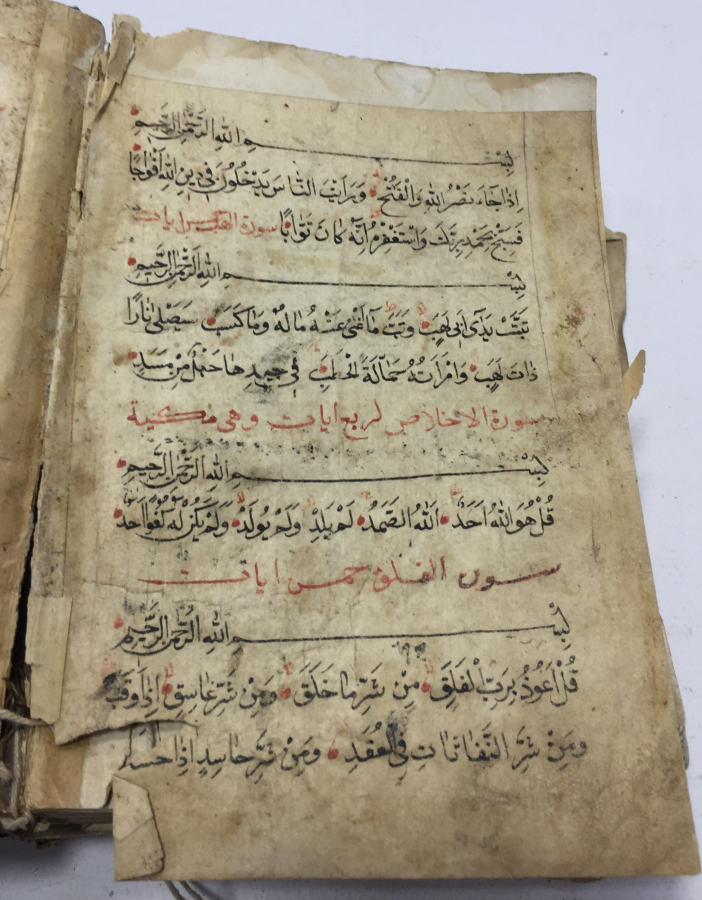 بِسْمِ اللهِ الرَّحْمٰنِ الرَّحِيمِ
اِذَا جَاءَ نَصْرُ اللهِ وَالْفَتْحُ وَرَاَيْتَ النَّاسَ يَدْخُلُونَ فِي دِينِ اللهِ اَفْوَاجًا
فَسَبِّحْ بِحَمْدِ رَبِّكَ وَاسْتَغْفِرْهُ اِنَّهُ كَانَ تَوَّابًا سورة الهب ايات
بِسْمِ اللهِ الرَّحْمٰنِ الرَّحِيمِ
تَبَّتْ يَدَآ اَبِي لَهَبٍ وَتَبَّ مَا اَغْنٰى عَنْهُ مَالُهُ وَمَا كَسَبَ سَيَصْلٰى نَارًا
ذَاتَ لَهَبٍ وَامْرَاَتُهُ حَمَّالَةَ الْحَطَبِ فِي جِيدِهَا حَبْلٌ مِنْ مَسَدٍ
سورة الاخلاص اربع ايات وهى مكية
بِسْمِ اللهِ الرَّحْمٰنِ الرَّحِيمِ
قُلْ هُوَ اللهُ اَحَدٌ اَللهُ الصَّمَدُ لَمْ يَلِدْ وَلَمْ يُولَدْ وَلَمْ يَكُنْ لَهُ كُفُوًا اَحَدٌ
سورة الفلق خمس ايات
بِسْمِ اللهِ الرَّحْمٰنِ الرَّحِيمِ
قُلْ اَعُوذُ بِرَبِّ الْفَلَقِ مِنْ شَرِّ مَا خَلَقَ وَمِنْ شَرِّ غَاسِقٍ اِذَا وَقَبَ
وَمِنْ شَرِّ النَّفَّاثَاتِ فِي الْعُقَدِ وَمِنْ شَرِّ حَاسِدٍ اِذَا حَسَدَ